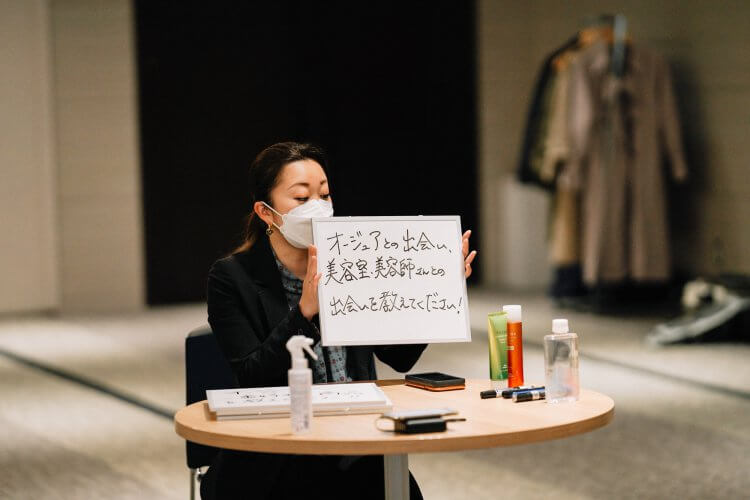 オージュアとの出会い、
美容室・美容師さんとの
出会いを教えてください!